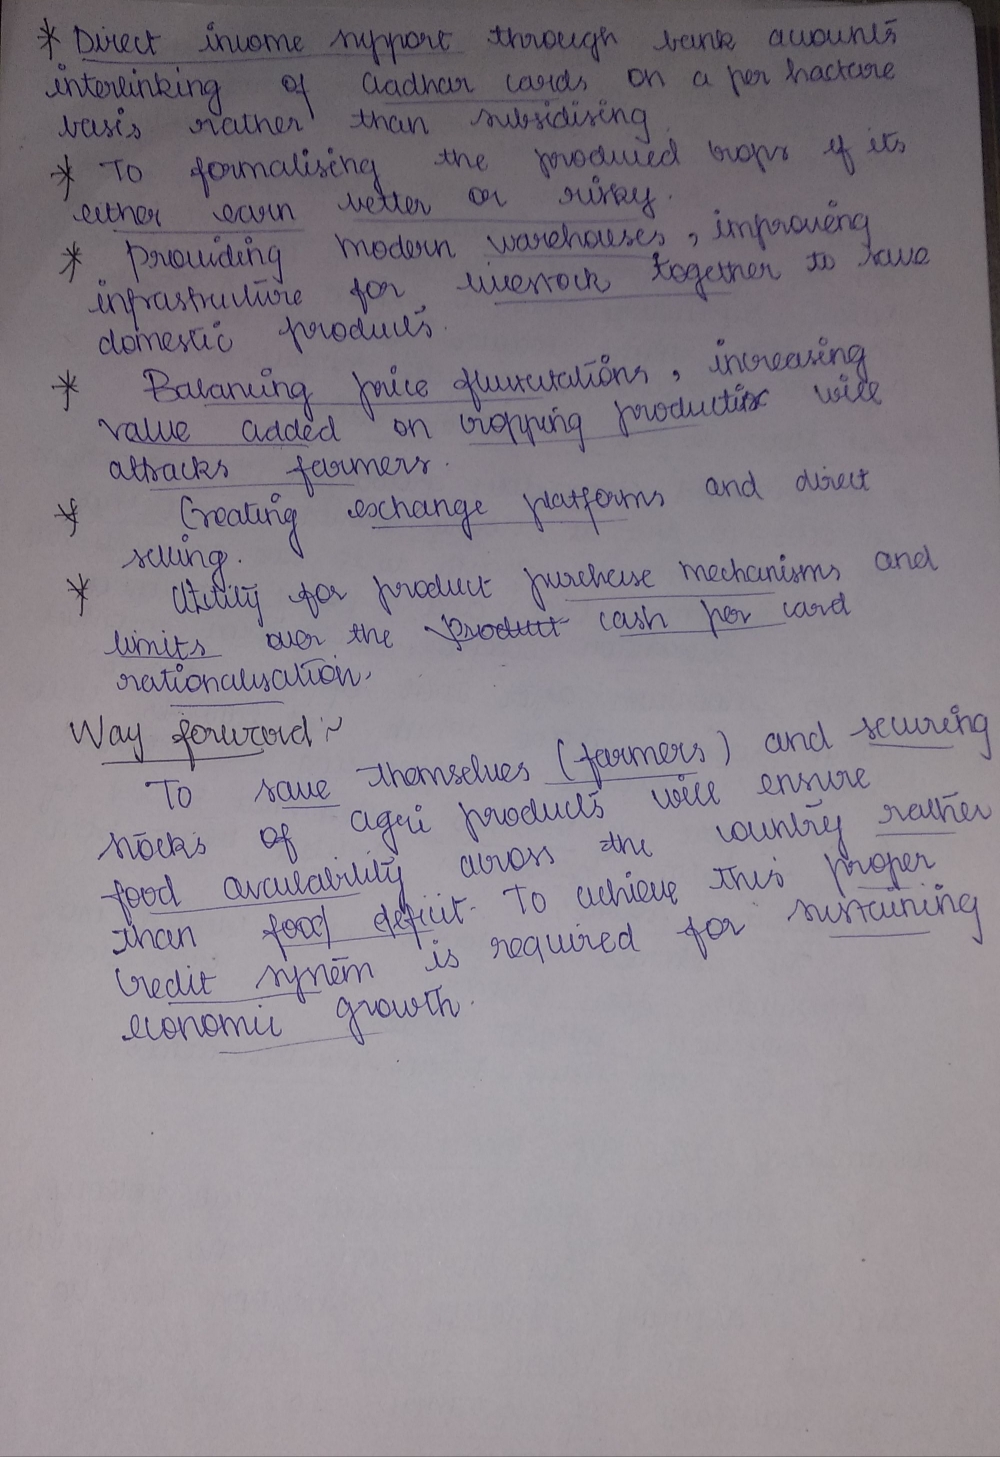 * Direct income support through bank accounts
interlinking of Aadhar cards on a per hactare
basis rather than subsidising
* To formalising the produced crops if its
either earn better or risky.
* Providing modern warehouses, improving
infrastructure for livestock together to save
domestic products.
* Balancing price fluxutations, increasing
value added on cropping production will
attracks farmers.
* Creating exchange platforms and direct
selling.
* Utility for product purchase mechanisms and
limits over the product cash per card
rationalisation.
Way forword:~
To save themselves (farmers) and securing
stocks of agri products will ensure
food availability across the country rather
than food deficit. To achieve this proper
credit system is required for sustaining
economic growth.